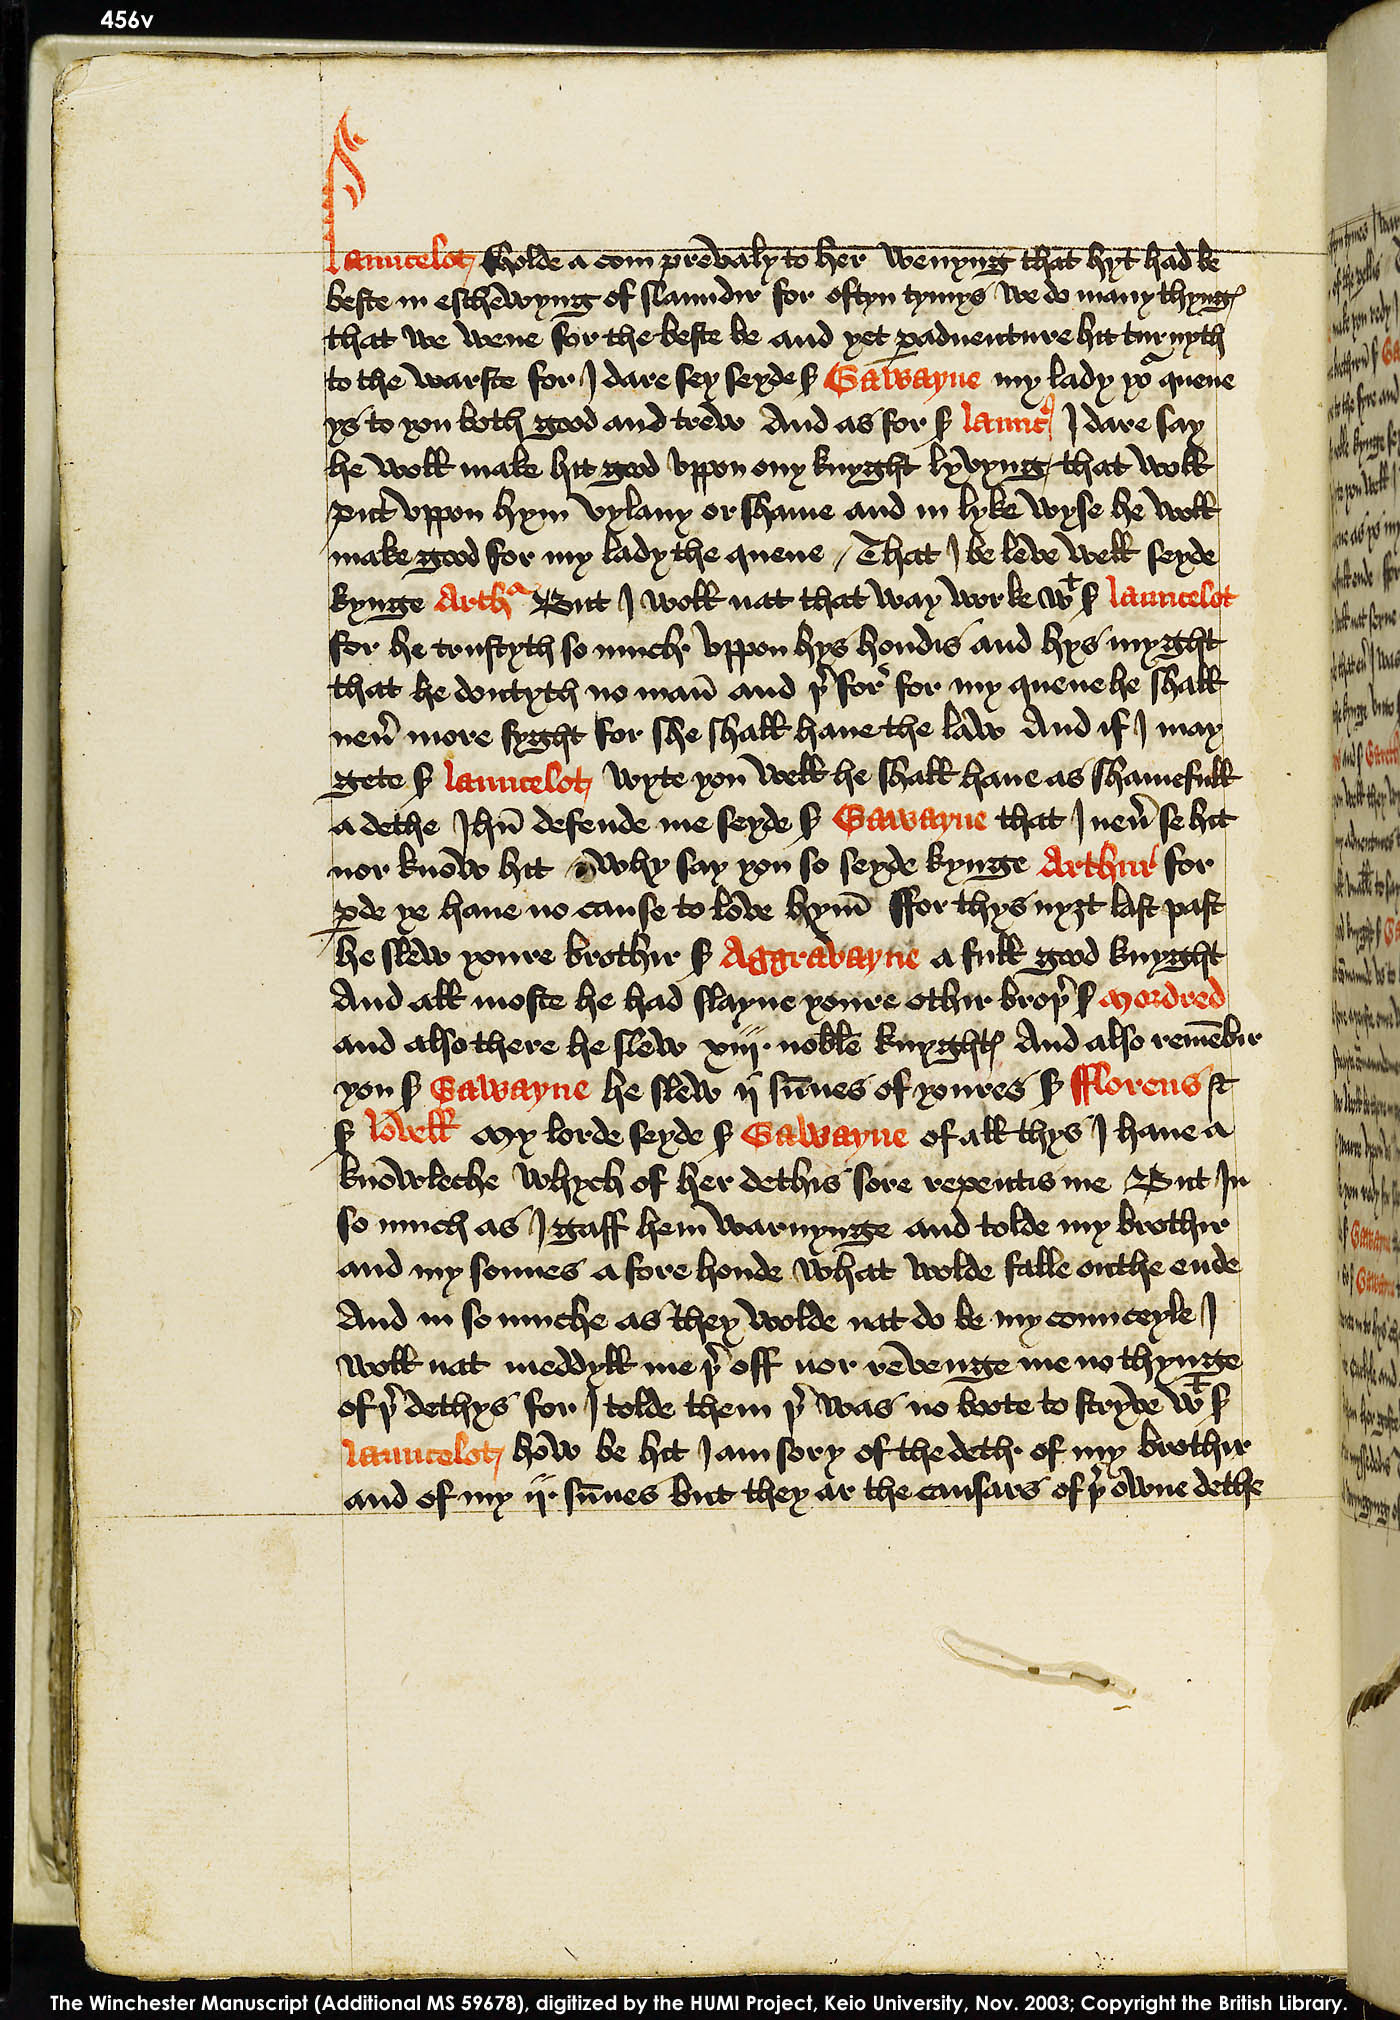 456v
launcelot sholde a com prevaly to her wenyng that hyt had be
beste in eschewyng of slaundir for oftyn tymys we do many thyngꝭ
that we wene for the beste be and yet ꝑaduenture hit turnyth
to the warste for I dare sey seyde ẜ Gawayne my lady yoᵃ quene
ys to you both good and trew And as for ẜ launcꝰ I dare say
he woll make hit good vppon ony knyght lyvyng that woll
put vppon hym vylany or shame and in lyke wyse he woll
make good for my lady the quene / That I be leve well seyde
kynge Arthᵃ But I woll nat that way worke wᵗ ẜ launcelot
for he trustyth so much vppon hys hondis and hys myght
that he doutyth no man̄ and þ̉ for̉ for my quene he shall
neũ more fyght for she shall haue the law And if I may
gete ẜ launcelot wyte you well he shall haue as shamefull
a dethe Ihū defende me seyde ẜ Gawayne that I neũ se hit
nor know hit why say you so seyde kynge Arthur for
ꝑde ye haue no cause to love hym̄ ffor thys nyȝt last past
he slew youre brothir ẜ Aggravayne a full good knyght
And all moste he had slayne youre othir broþ̉ ẜ Mordred
and also there he slew xiij. noble knyghtꝭ And also remēbir
you ẜ Gawayne he slew ij sūnes of youres ẜ fflorens &
ẜ lovell My lorde seyde ẜ Gawayne of all thys I haue a
knowleche whych of her dethis sore repentis me But In
so much as I gaff hem warnynge and tolde my brothir
and my sonnes a fore honde what wolde falle on the ende
And in so muche as they wolde nat do be my counceyle I
woll nat meddyll me þ̉ off nor revenge me no thynge
of þ̉ dethys for I tolde them þ̉ was no boote to stryve wᵗ ẜ
launcelot how be hit I am sory of the deth of my brothir
and of my ij. sūnes but they ar the causars of þ̉ owne dethe
The Winchester Manuscript (Additional MS 59678), digitized by the HUMI Project, Keio University, Nov. 2003; Copyright the British Library.